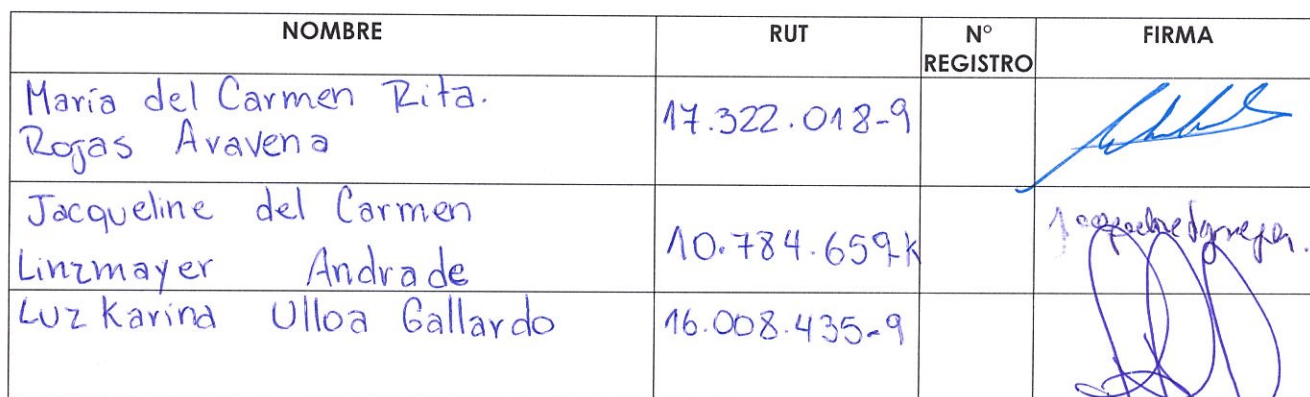 NOMBRE RUT N° REGISTRO FIRMA
María del Carmen Rita.
Rojas Aravena 17.322.018-9
Jacqueline del Carmen
Linzmayer Andrade 10.784.659-k
Luz Karina Ulloa Gallardo 16.008.435-9